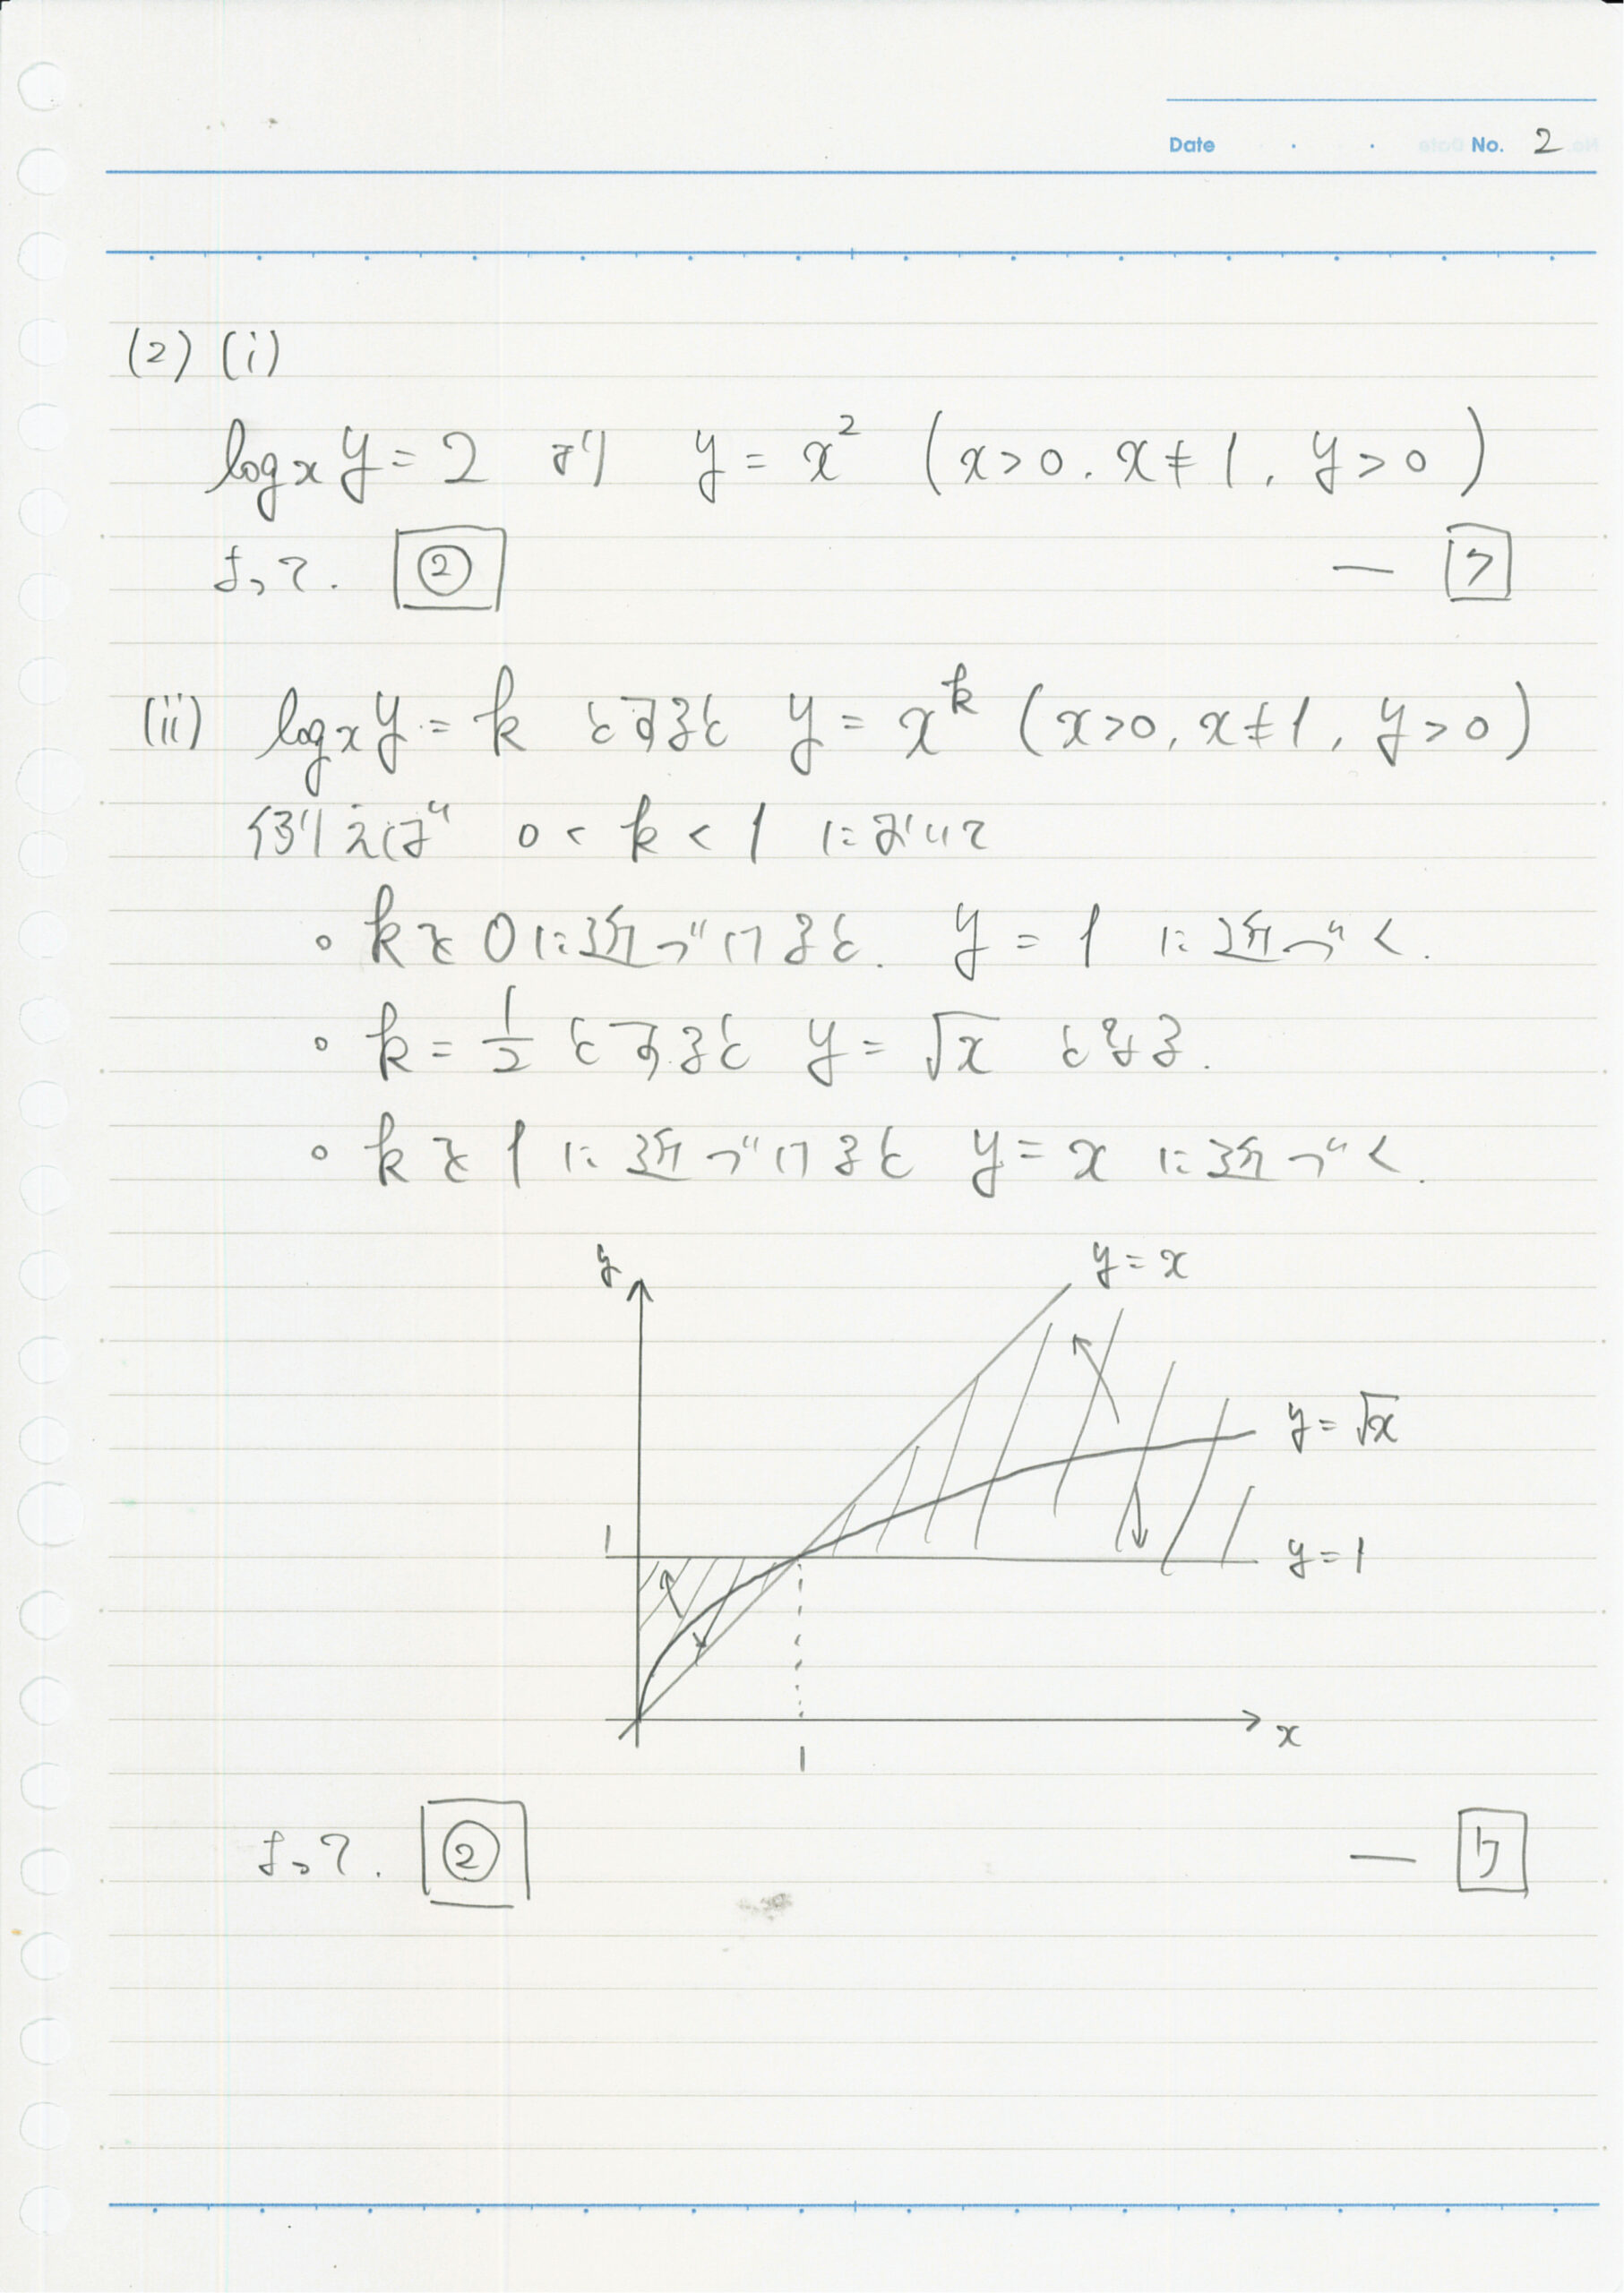 Date No. 2
(2) (i)
log x y = 2 より y = x² (x>0, x≠1, y>0)
よって. ②
— ク
(ii) log x y = k とすると y = x^k (x>0, x≠1, y>0)
例えば 0 < k < 1 において
• kを0に近づけると. y = 1 に近づく.
• k = 1/2 とすると y = √x となる.
• kを1に近づけると y = x に近づく.
y
y = x
y = √x
1
y = 1
x
1
よって. ②
— ケ